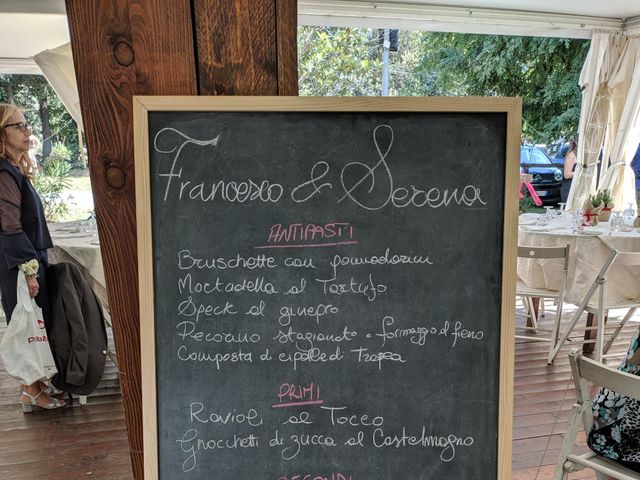 Francesco & Serena
ANTIPASTI
Bruschette con pomodorini
Mortadella al Tartufo
Speck al ginepro
Pecorino stagionato e formaggio al fieno
Composta di cipolle di Tropea
PRIMI
Ravioli al Tocco
Gnocchetti di zucca al Castelmagno
SECONDI